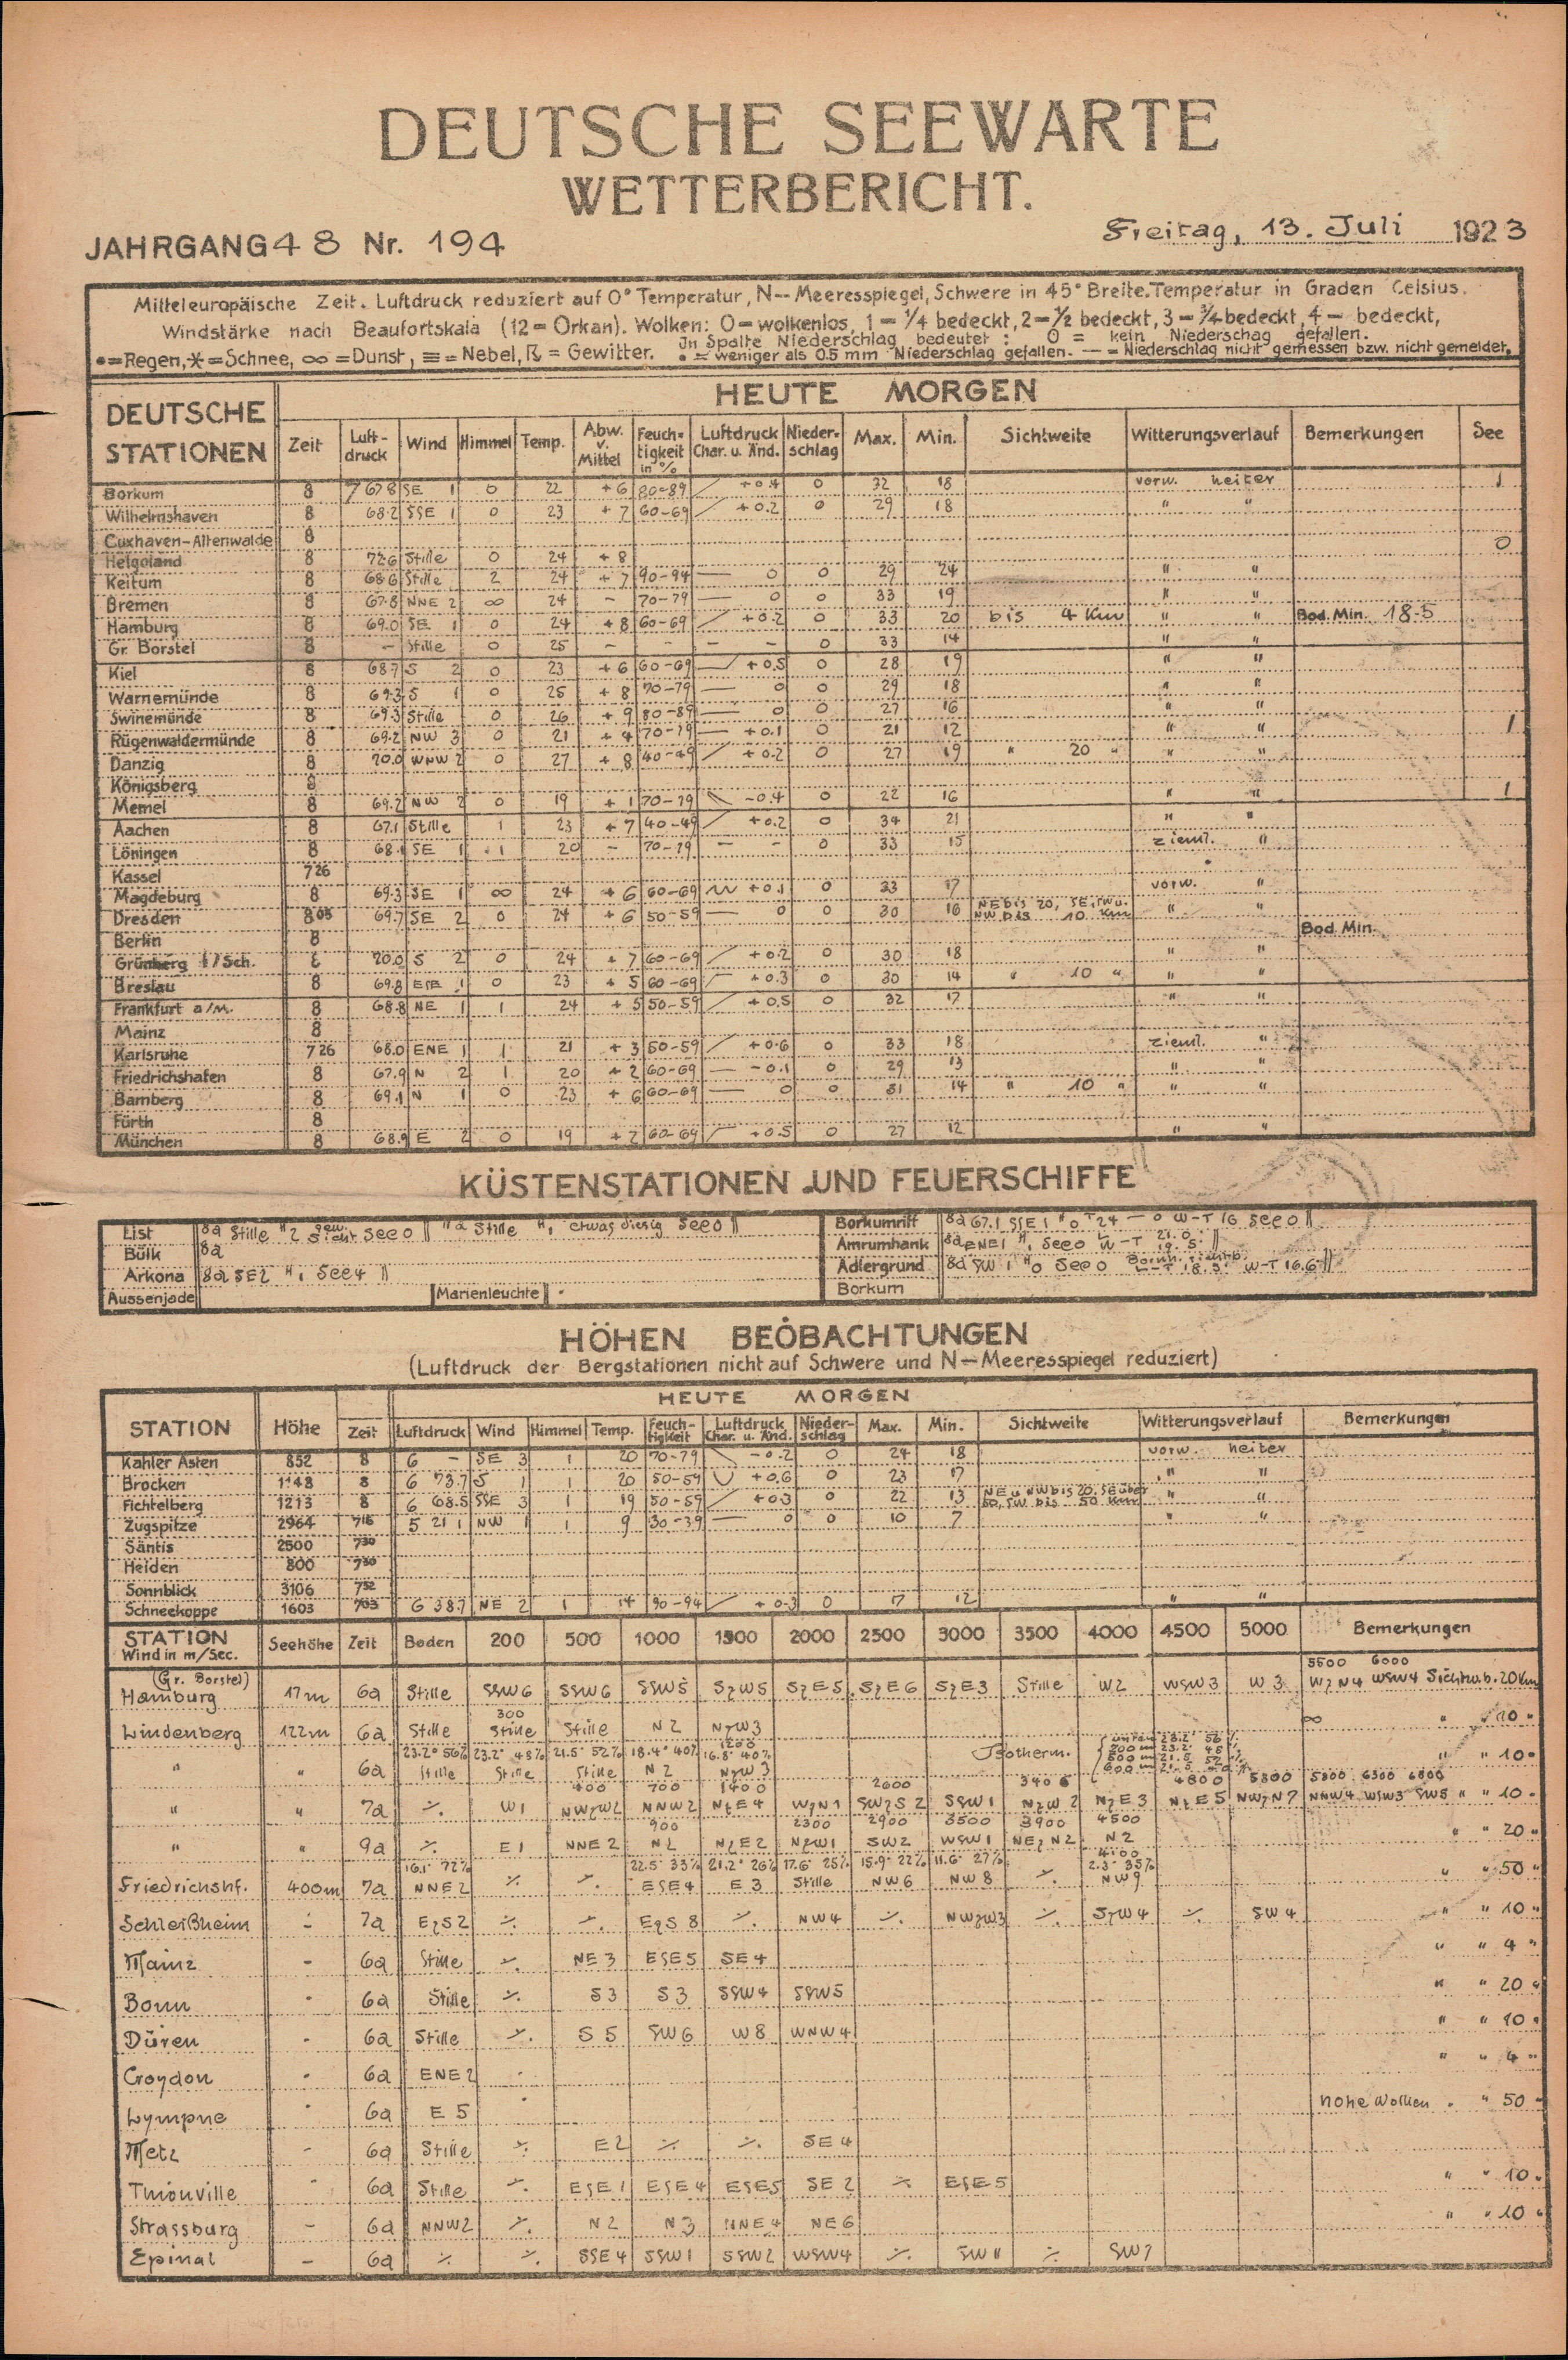 DEUTSCHE SEEWARTE
WETTERBERICHT.
JAHRGANG 48 Nr. 194
Freitag, 13. Juli 1923
Mitteleuropäische Zeit. Luftdruck reduziert auf 0° Temperatur, N-- Meeresspiegel, Schwere in 45° Breite. Temperatur in Graden Celsius.
Windstärke nach Beaufortskala (12 = Orkan). Wolken: 0 = wolkenlos, 1 = 1/4 bedeckt, 2 = 1/2 bedeckt, 3 = 3/4 bedeckt, 4 — bedeckt,
In Spalte Niederschlag bedeutet: 0 = kein Niederschag gefallen.
•=Regen, *=Schnee, ∞=Dunst, ≡=Nebel, ☈ = Gewitter. • = weniger als 0.5 mm Niederschlag gefallen. — = Niederschlag nicht gemessen bzw. nicht gemeldet.
DEUTSCHE STATIONEN
HEUTE MORGEN
Zeit Luft-druck Wind Himmel Temp. Abw. v. Mittel Feuch=tigkeit in % Luftdruck Char. u. Änd. Nieder=schlag Max. Min. Sichtweite Witterungsverlauf Bemerkungen See
Borkum 8 767.8 SE 1 0 22 +6 80-89 +0.4 0 32 18 vorw. heiter 1
Wilhelmshaven 8 68.2 SSE 1 0 23 +7 60-69 +0.2 0 29 18 " "
Cuxhaven-Altenwalde 8
Helgoland 8 72.6 Stille 0 24 +8 0
Keitum 8 68.6 Stille 2 24 +7 90-94 — 0 0 29 24 " "
Bremen 8 67.8 NNE 2 ∞ 24 - 70-79 — 0 0 33 19 " "
Hamburg 8 69.0 SE 1 0 24 +8 60-69 +0.2 0 33 20 bis 4 Km " " Bod. Min. 18.5
Gr. Borstel 8 - Stille 0 25 - - - - 0 33 14 " "
Kiel 8 68.7 S 2 0 23 +6 60-69 +0.5 0 28 19 " "
Warnemünde 8 69.3 S 1 0 25 +8 70-79 — 0 0 29 18 " "
Swinemünde 8 69.3 Stille 0 26 +9 80-89 — 0 0 27 16 " "
Rügenwaldermünde 8 69.2 NW 3 0 21 +4 70-79 — +0.1 0 21 12 " " 1
Danzig 8 70.0 WNW 2 0 27 +8 40-49 +0.2 0 27 19 " 20 " " "
Königsberg 8
Memel 8 69.2 NW 2 0 19 +1 70-79 -0.4 0 22 16 " " 1
Aachen 8 67.1 Stille 1 23 +7 40-49 +0.2 0 34 21 " "
Löningen 8 68.1 SE 1 1 20 - 70-79 — - 0 33 15 zieml. "
Kassel 7 26
Magdeburg 8 69.3 SE 1 ∞ 24 +6 60-69 +0.1 0 33 17 vorw. "
Dresden 8 05 69.7 SE 2 0 24 +6 50-59 — 0 0 30 16 NE bis 20, SE, SW u. NW bis 10 Km " "
Berlin 8 Bod. Min.
Grünberg i/Sch. 8 70.0 S 2 0 24 +7 60-69 +0.2 0 30 18 " "
Breslau 8 69.8 ESE 1 0 23 +5 60-69 +0.3 0 30 14 " 10 " " "
Frankfurt a/M. 8 68.8 NE 1 1 24 +5 50-59 +0.5 0 32 17 " "
Mainz 8
Karlsruhe 7 26 68.0 ENE 1 1 21 +3 50-59 +0.6 0 33 18 zieml. "
Friedrichshafen 8 67.9 N 2 1 20 +2 60-69 — -0.1 0 29 13 " "
Bamberg 8 69.1 N 1 0 23 +6 60-69 — 0 0 31 14 " 10 " " "
Fürth 8
München 8 68.9 E 2 0 19 +2 60-69 +0.5 0 27 12 " "
KÜSTENSTATIONEN UND FEUERSCHIFFE
List 8a Stille See 0 Stille etwas diesig See 0
Bülk 8a
Arkona 8a SE2 See 4
Aussenjade Marienleuchte
Borkumriff 8a 67.1 SSE 1 T 24 — 0 W-T 16 See 0
Amrumbank 8a ENE1 See 0
Adlergrund 8a SW 1 See 0 W-T 16.6
Borkum
HÖHEN BEOBACHTUNGEN
(Luftdruck der Bergstationen nicht auf Schwere und N — Meeresspiegel reduziert)
HEUTE MORGEN
STATION Höhe Zeit Luftdruck Wind Himmel Temp. Feuch-tigkeit Luftdruck Char. u. Änd. Nieder-schlag Max. Min. Sichtweite Witterungsverlauf Bemerkungen
Kahler Asten 852 8 6 - SE 3 1 20 70-79 -0.2 0 24 18 vorw. heiter
Brocken 1148 8 6 73.7 S 1 1 20 50-59 +0.6 0 23 17 " "
Fichtelberg 1213 8 6 68.5 SSE 3 1 19 50-59 +0.3 0 22 13 NE u NW bis 20, SE über 50, SW bis 50 Km " "
Zugspitze 2964 7 16 5 21 1 NW 1 1 9 30-39 — 0 0 10 7 " "
Säntis 2500 7 30
Heiden 800 7 30
Sonnblick 3106 7 52
Schneekoppe 1603 7 03 6 38.7 NE 2 1 14 90-94 +0.3 0 17 12 " "
STATION Wind in m/Sec. Seehöhe Zeit Boden 200 500 1000 1500 2000 2500 3000 3500 4000 4500 5000 Bemerkungen
5500 6000
(Gr. Borstel) Hamburg 17m 6a Stille SSW6 SSW6 SSW5 SzW5 SzE5 SzE6 SzE3 Stille W2 WSW3 W3 WzN4 WSW4 Sicht u.b. 20 Km
300
Lindenberg 122m 6a Stille Stille Stille N2 NzW3 ∞ " " 10 "
23.2° 56% 23.2° 48% 21.5° 52% 18.4° 40% 1200 16.8° 40%
" " 6a Stille Stille Stille N2 NzW3 Isotherm. " " 10 "
400 700 1400 2600 3400 4800 5300 5800 6300 6800
" " 7a ·/. W1 NWzW2 NNW2 NzE4 WzN1 SWzS2 SSW1 NzW2 NzE3 NzE5 NWzN7 NNW4 WSW3 SW5 " " 10 "
900 2300 2900 3500 3900 4500
" " 9a ·/. E1 NNE2 N2 NzE2 NzW1 SW2 WSW1 NEzN2 N2 " " 20 "
16.1° 72% 22.5° 33% 21.2° 26% 17.6° 25% 15.9° 22% 11.6° 27% 4100 2.3° 35%
Friedrichshf. 400m 7a NNE2 ·/. ·/. ESE4 E3 Stille NW6 NW8 ·/. NW9 " " 50 "
Schleißheim - 7a EzS2 ·/. ·/. EzS8 ·/. NW4 ·/. NWzW3 ·/. SzW4 ·/. SW4 " " 10 "
Mainz - 6a Stille ·/. NE3 ESE5 SE4 " " 4 "
Bonn - 6a Stille ·/. S3 S3 SSW4 SSW5 " " 20 "
Düren - 6a Stille ·/. S5 SW6 W8 WNW4 " " 10 "
Croydon - 6a ENE2 " " 4 "
Lympne - 6a E5 hohe Wolken " " 50 "
Metz - 6a Stille ·/. E2 ·/. ·/. SE4
Thionville - 6a Stille ·/. ESE1 ESE4 ESE5 SE2 ·/. ESE5 " " 10 "
Strassburg - 6a NNW2 ·/. N2 N3 NNE4 NE6 " " 10 "
Epinal - 6a ·/. ·/. SSE4 SSW1 SSW2 WSW4 ·/. SW11 ·/. SW7